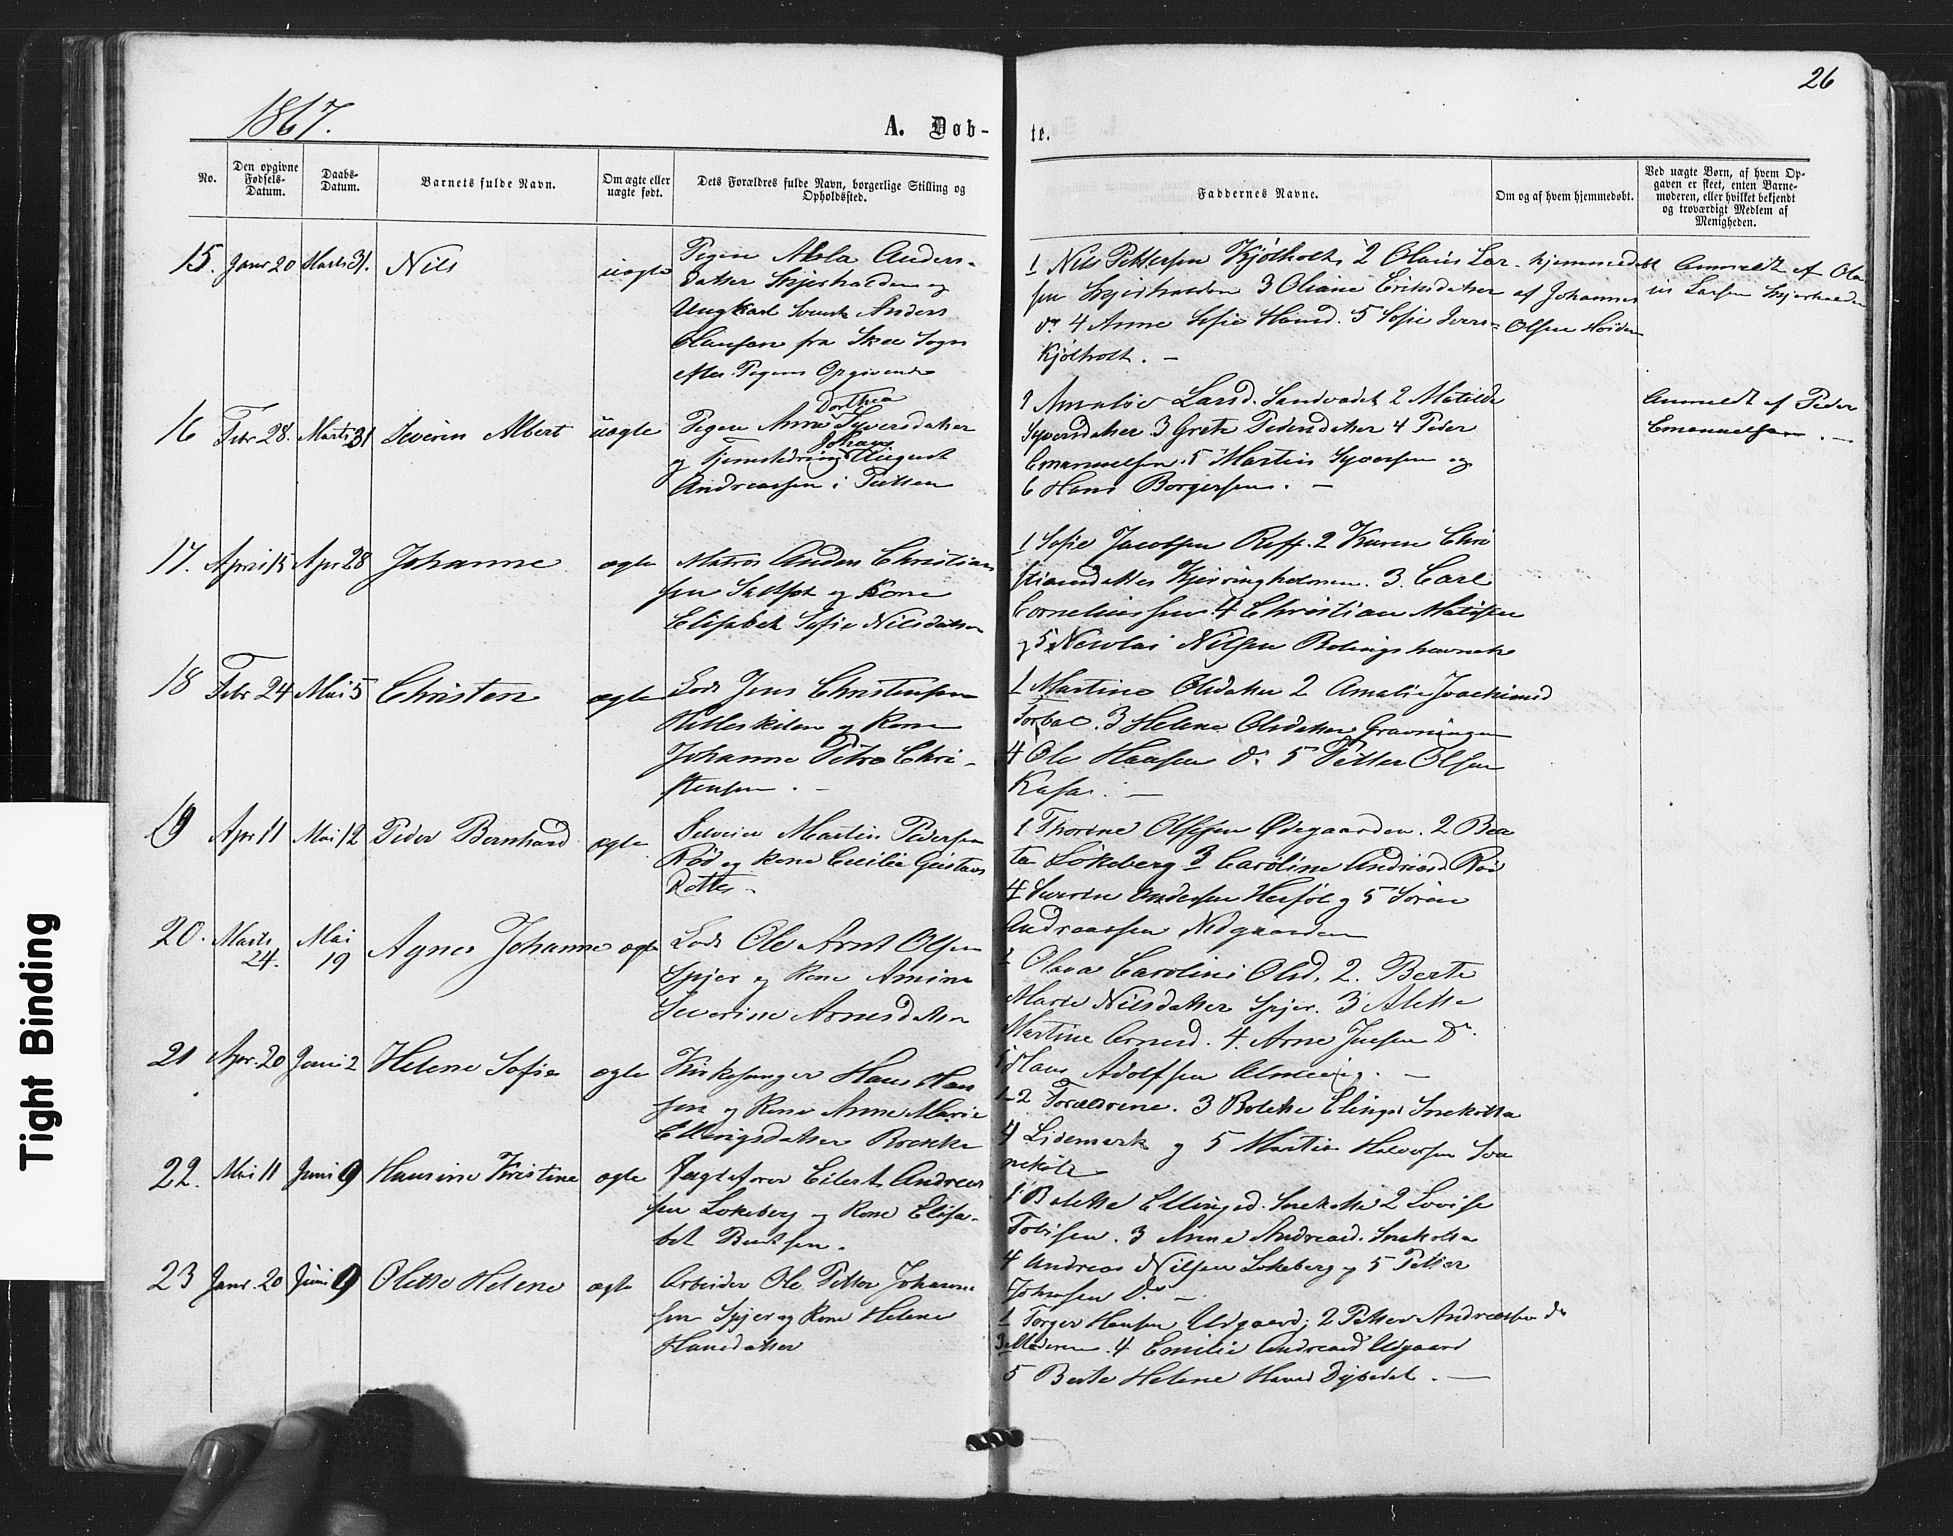 1867.
A. Døb-
te.
26
No.
Den opgivne Fødsels-Datum.
Daabs-Datum.
Barnets fulde Navn.
Om ægte eller uægte født.
Dets Forældres fulde Navn, borgerlige Stilling og Opholdssted.
Faddernes Navne.
Om og af hvem hjemmedøbt.
Ved uægte Børn, af hvem Opgaven er skeet, enten Barnemoderen, eller hvilket bekjendt og troværdigt Medlem af Menigheden.
15. Janr 20 Marts 31. Nils uægte Pigen Anders-
datter og
Ungkarl Svensk Anders
Olausen fra Skee Sogn
efter Pigens Opgivende
1 Nils Pettersen Kjølholt, 2 Olaus Lar-
sen 3 Oliane Eriksdatter
do 4 Anne Sofie Hansd. 5 Sofie Ivers-
Kjølholt. -
hjemmedøbt
af Johannes
Olsen
Anmeldt af Ola-
us Larsen
16 Febr 28. Marts 31 Severin Albert uægte Pigen Anne Dorthea Syversdatter
og Johan August
Andreassen i
1 Larsd. Sandvadet 2 Matilde
Syversdatter 3 Grete Pedersdatter 4 Peder
Emanuelsen. 5 Martin Syversen og
6 Hans Borgersen. -
Anmeldt af Peder
Emanuelsen. -
17. April 15 Apr 28 Johanne ægte Matros Anders Christian
sen og Kone
Elisabeth Sofie Nilsdatter
1 Sofie Jacobsen Reff. 2 Karen Chri
stiansdatter Kjerringholmen. 3. Carl
Corneliussen. 4 Christian Matisen
og 5 Nicolai Nilsen
18 Febr 24 Mai 5 Christen ægte Lods Jens Christensen
og Kone
Johanne Petra Chri-
stensen. -
1 Martine Olsdatter 2 Amalie Joachimsd
3 Helene Olsdatter Gravningen
4 Ole Hansen do 5 Petter Olsen
Kasa. -
19 Apr 11 Mai 12 Peder Bernhard ægte Selveier Martin Pedersen
Rød og Kone Cecilie Gustavs
Datter -
1 Thorine Olsen Ødegaarden. 2 Bea
ta Lökeberg 3 Caroline Andreasd Rød
4 Severin Andersen Herföl og 5 Sören
Andreassen Nedgaarden
20. Marts 24. Mai 19 Agnes Johanne ægte Lods Ole Arnt Olsen
Spjær og Kone Amine
Severine Arnesdatter
1 Olava Caroline Olsd, 2. Berte
Marie Nilsdatter Spjær. 3 Alette
Martine Arnesd. 4. Arne Jensen Do.
5 Hans Adolfsen
21 Apr. 20 Juni 2 Helene Sofie ægte Kirkesanger Hans Han
sen og Kone Anne Marie
Ellingsdatter Brekke
1-2 Forældrene. 3 Bolette Elingsd
4 Lidemark og 5 Martin Halvorsen
22. Mai 11 Juni 9 Hansine Kristine ægte Eilert Andreas
sen Lökeberg og Kone Elisa-
bet Berntsen.
1 Bolette Ellingsd. 2 Lovise
Tobisen. 3 Anne Andreasd.
4 Andreas Nilsen Lökeberg og 5 Petter
Johnsen Do. -
23 Janr. 20 Juni 9 Olette Helene ægte Arbeider Ole Petter Johanne
sen Spjær og Kone Helene
Hansdatter
1 Torger Hansen Udgaard; 2 Petter Andreassen do
3 Moderen. 4 Emilie Andreasd Udgaard
5 Berte Helene Hansd Dybedal. -
Tight Binding